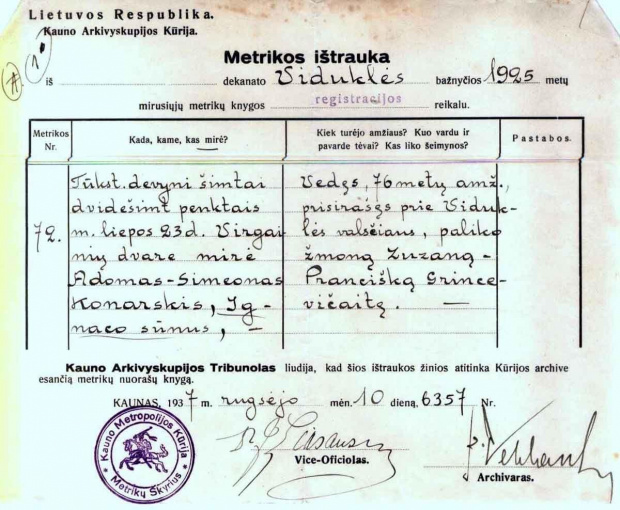 Lietuvos Respublika.
Kauno Arkivyskupijos Kūrija.
Metrikos ištrauka
iš dekanato Viduklės bažnyčios 1925 metų
mirusiųjų metrikų knygos registracijos reikalu.
Metrikos Nr.
Kada, kame, kas mirė?
Kiek turėjo amžiaus? Kuo vardu ir pavarde tėvai? Kas liko šeimynos?
Pastabos.
72.
Tūkst. devyni šimtai
dvidešimt penktais
m. liepos 23 d. Virgai-
nių dvare mirė
Adomas-Simeonas
Konarskis, Ig-
naco sūnus, —
Vedęs, 76 metų amž.,
prisirašęs prie Viduk-
lės valsčiaus, paliko
žmoną Zuzaną-
Prancišką Grince-
vičaitę. —
Kauno Arkivyskupijos Tribunolas liudija, kad šios ištraukos žinios atitinka Kūrijos archive
esančią metrikų nuorašų knygą.
KAUNAS, 1937 m. rugsėjo mėn. 10 dieną, 6357 Nr.
Kauno Metropolijos Kūrija
Metrikų Skyrius
Vice-Oficiolas.
Archivaras.